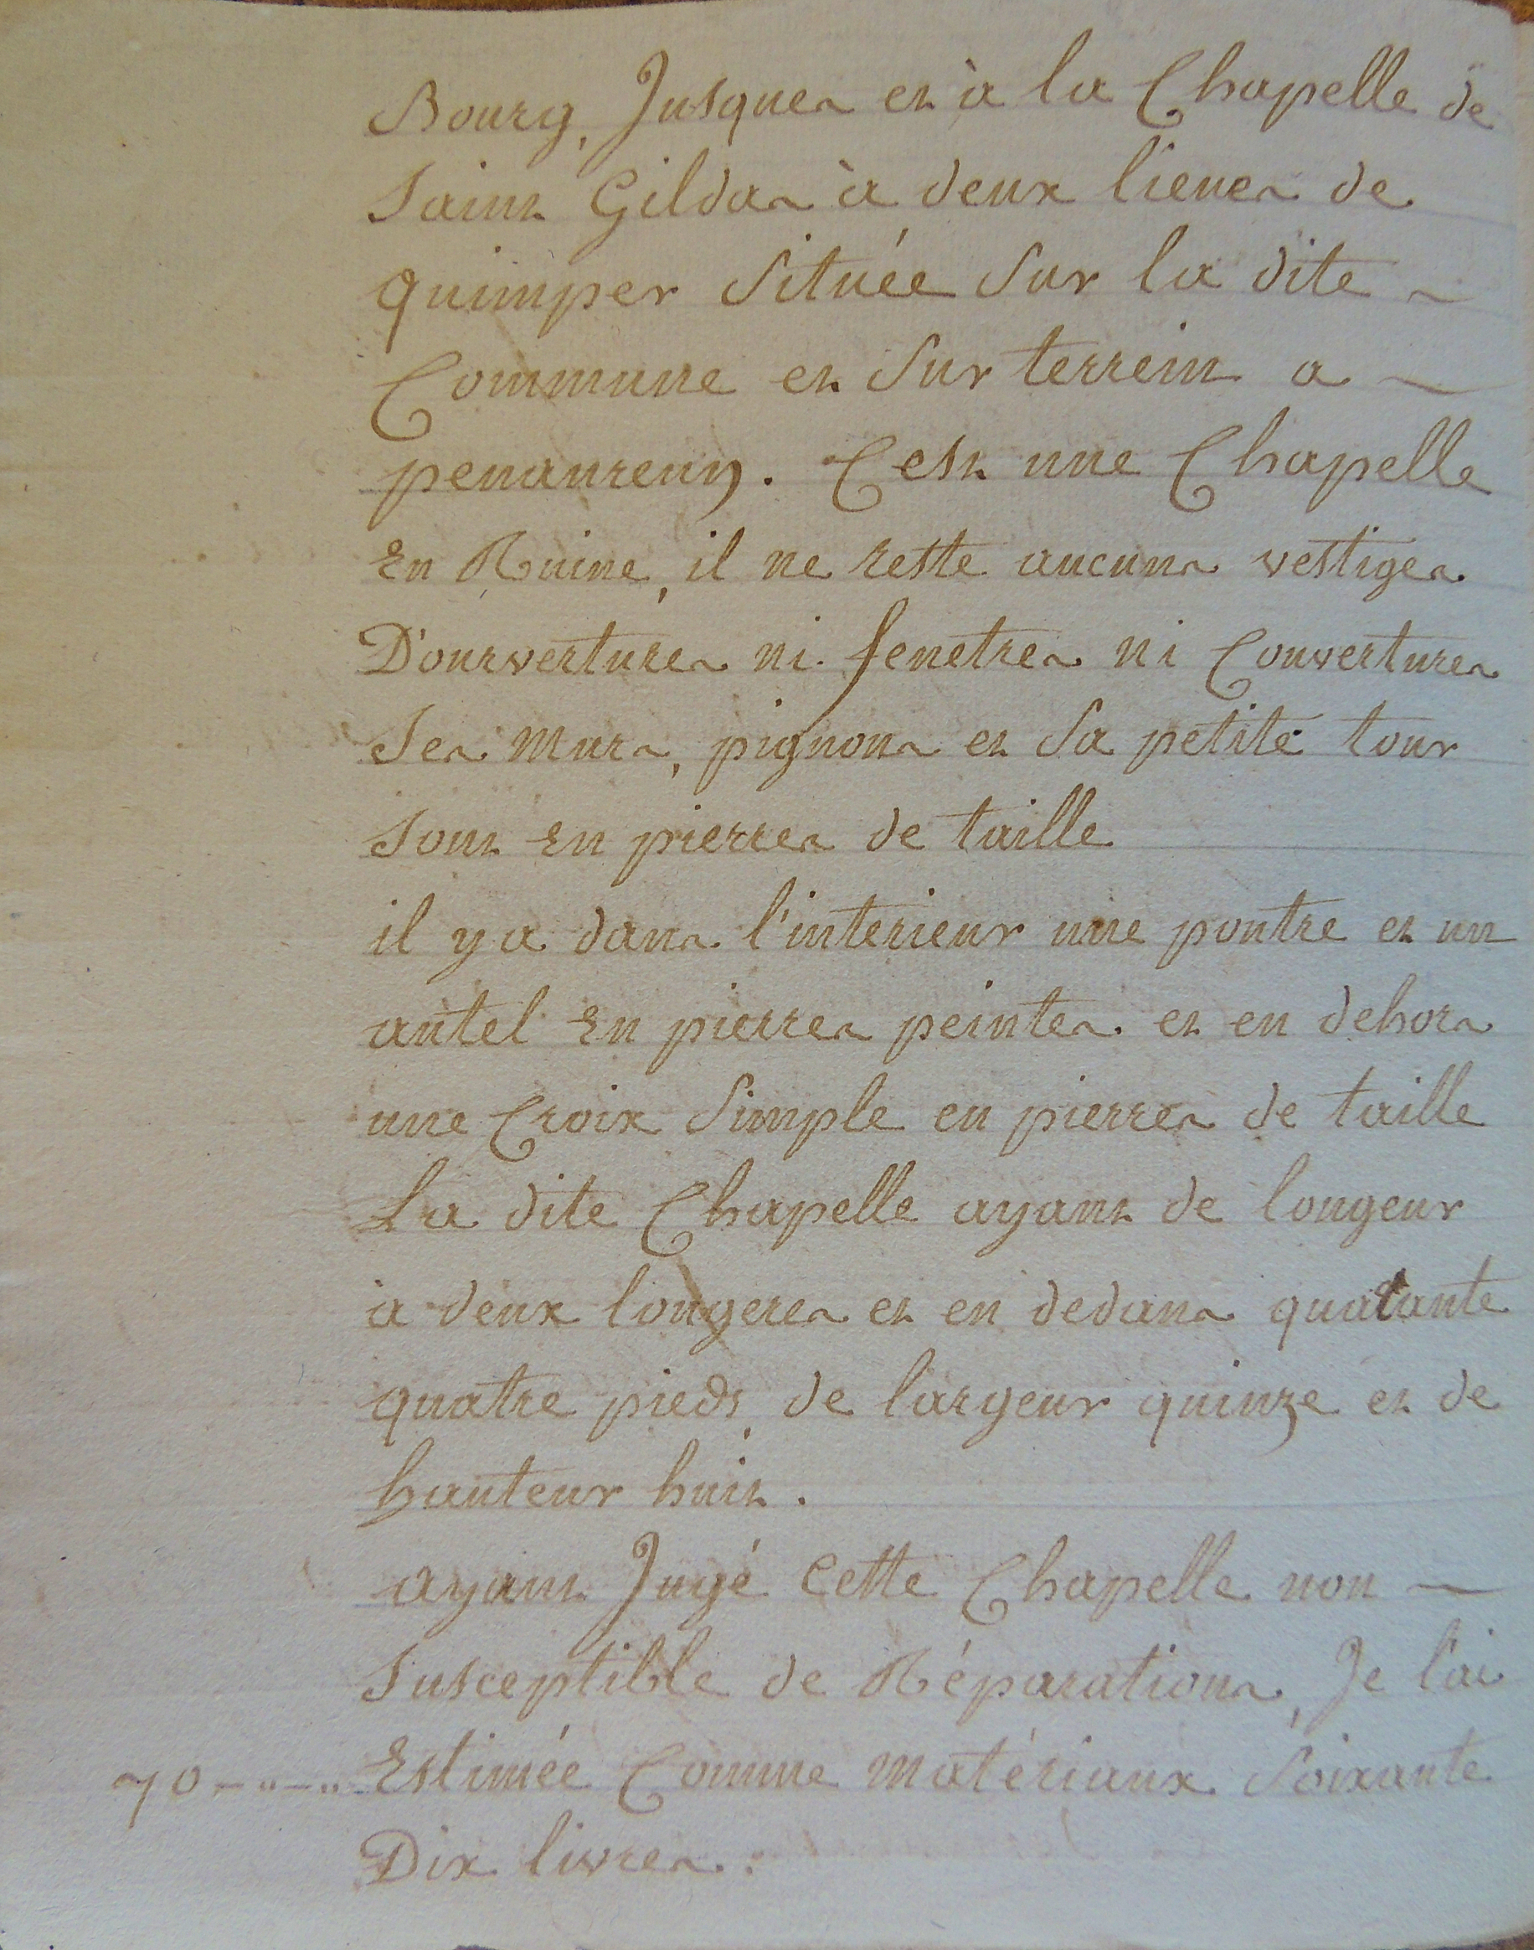 Bourg, Jusques et à la Chapelle de
Saint Gildas à deux lieues de
quimper située sur la dite ~
Commune et sur terrein a ~
penanreun. C'est une Chapelle
En Ruine, il ne reste aucuns vestiges
D'ourvertures ni fenetres ni Couvertures
Ses murs, pignons et sa petite tour
sont en pierres de taille
il y a dans l'interieur une poutre et un
autel en pierres peintes et en dehors
une Croix simple en pierres de taille
La dite Chapelle ayant de longeur
a deux longeres et en dedans quatante
quatre pieds, de largeur quinze et de
hauteur huit.
ayant Jugé cette Chapelle non ~
susceptible de Réparations, Je l'ai
70 - " - " Estimée Comme matériaux soixante
Dix livres.